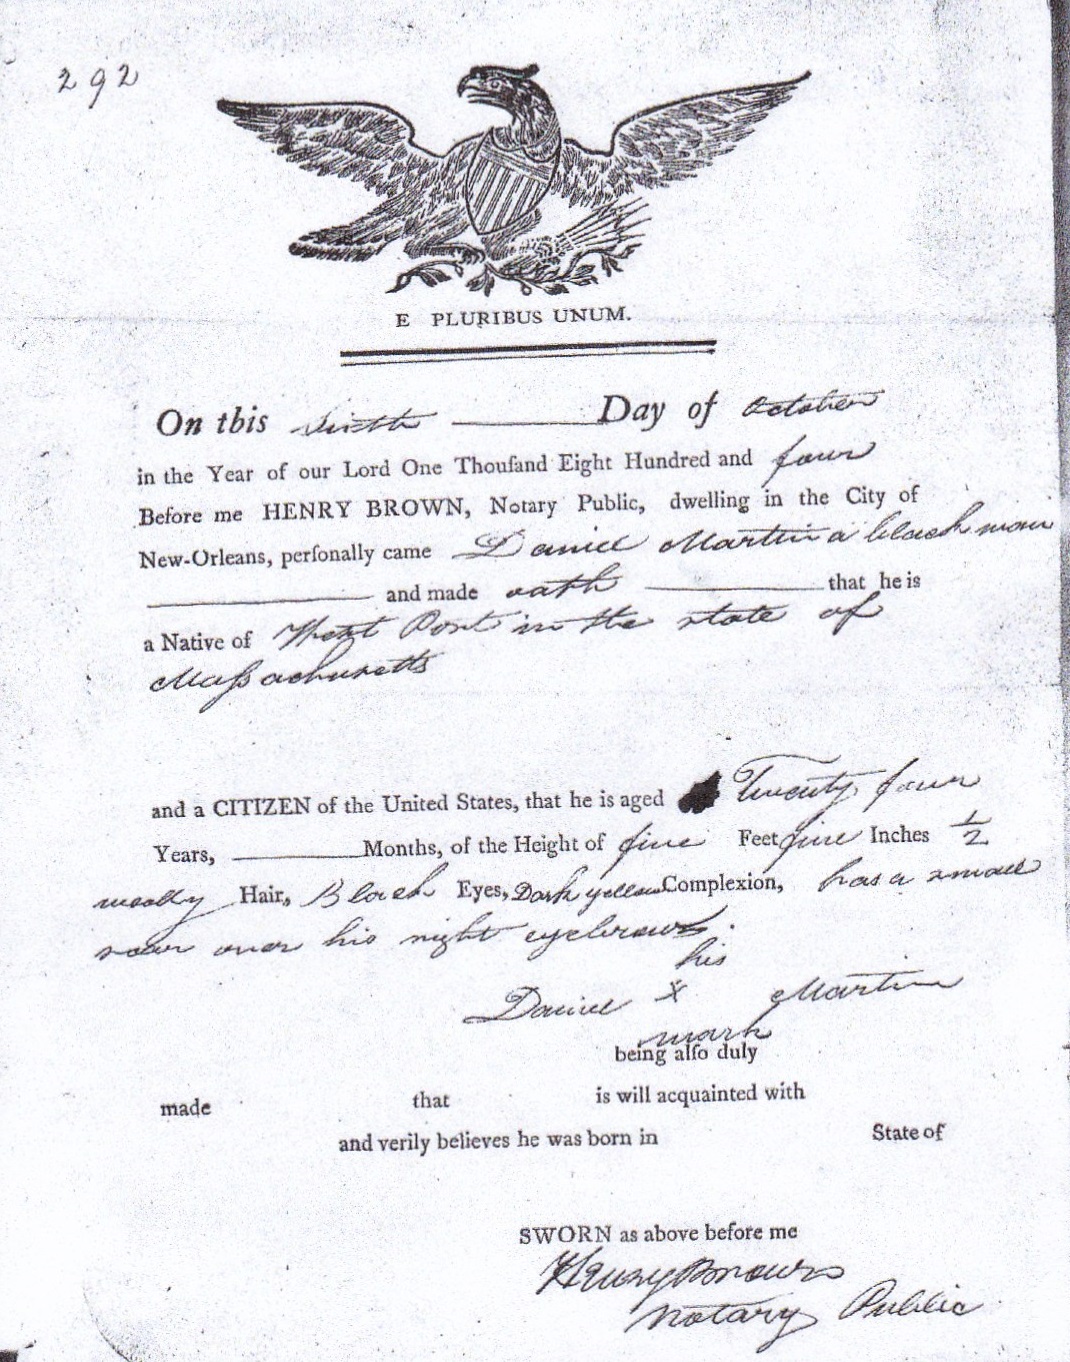 292
E PLURIBUS UNUM.
On this sixth Day of October
in the Year of our Lord One Thouſand Eight Hundred and four
Before me HENRY BROWN, Notary Public, dwelling in the City of
New-Orleans, perſonally came Daniel Martin a black man
and made oath that he is
a Native of West Port in the state of
Maſsachusetts
and a CITIZEN of the United States, that he is aged Twenty four
Years, Months, of the Height of five Feet five Inches 1/2
woolly Hair, Black Eyes, Dark yellow Complexion, has a small
scar over his right eyebrow.
his
Daniel X Martin
mark
being alſo duly
made that is will acquainted with
and verily believes he was born in State of
SWORN as above before me
Henry Brown
Notary Public